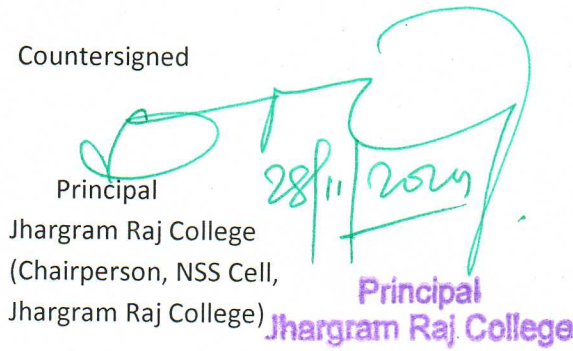 Countersigned
28/11/2024
Principal
Jhargram Raj College
(Chairperson, NSS Cell,
Jhargram Raj College)
Principal
Jhargram Raj College